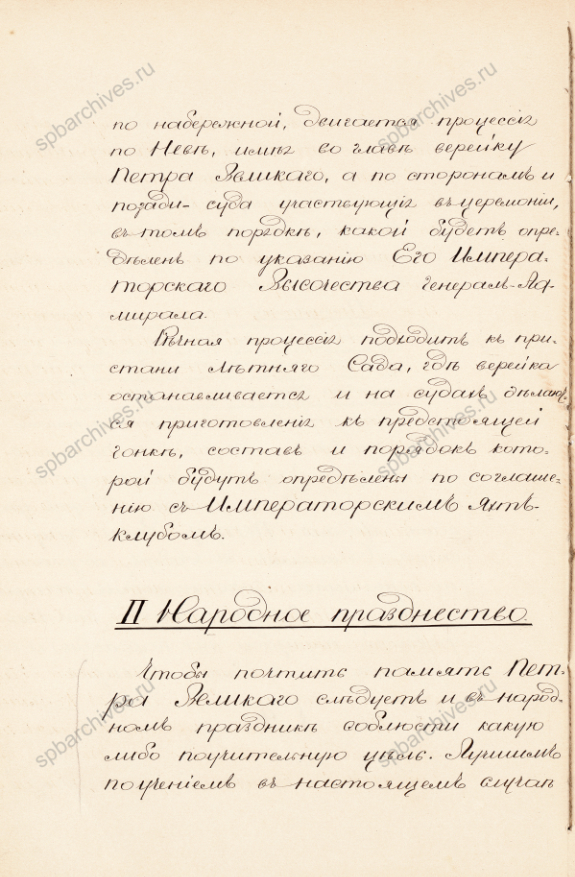 по набережной, двигается процессія
по Невѣ, имѣя во главѣ верейку
Петра Великаго, а по сторонамъ и
позади- суда участвующія въ церемоніи,
въ томъ порядкѣ, какой будетъ опре-
дѣленъ по указанію Его Импера-
торскаго Высочества Генералъ-Ад-
мирала.
Рѣчная процессія подходитъ къ при-
стани Лѣтняго Сада, гдѣ верейка
останавливается и на судахъ дѣлают-
ся приготовленія къ предстоящей
гонкѣ, составъ и порядокъ кото-
рой будутъ опредѣлены по соглаше-
нію съ Императорскимъ Яхтъ-
клубомъ.
II Народное празднество.
Чтобы почтить память Пет-
ра Великаго слѣдуетъ и въ народ-
номъ праздникѣ соблюсти какую
либо поучительную цѣль. Лучшимъ
поученіемъ въ настоящемъ случаѣ
spbarchives.ru
spbarchives.ru
spbarchives.ru
spbarchives.ru
spbarchives.ru
spbarchives.ru